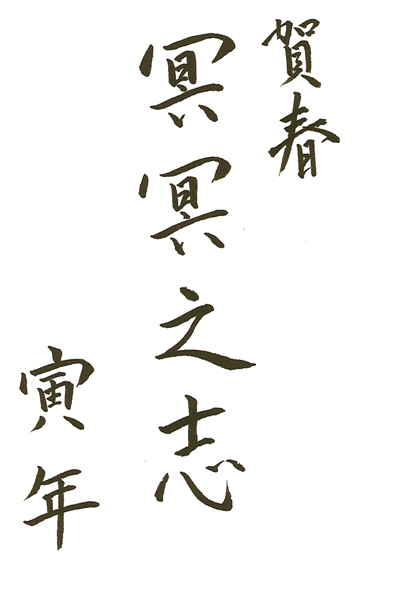 賀春
冥冥之志
寅年